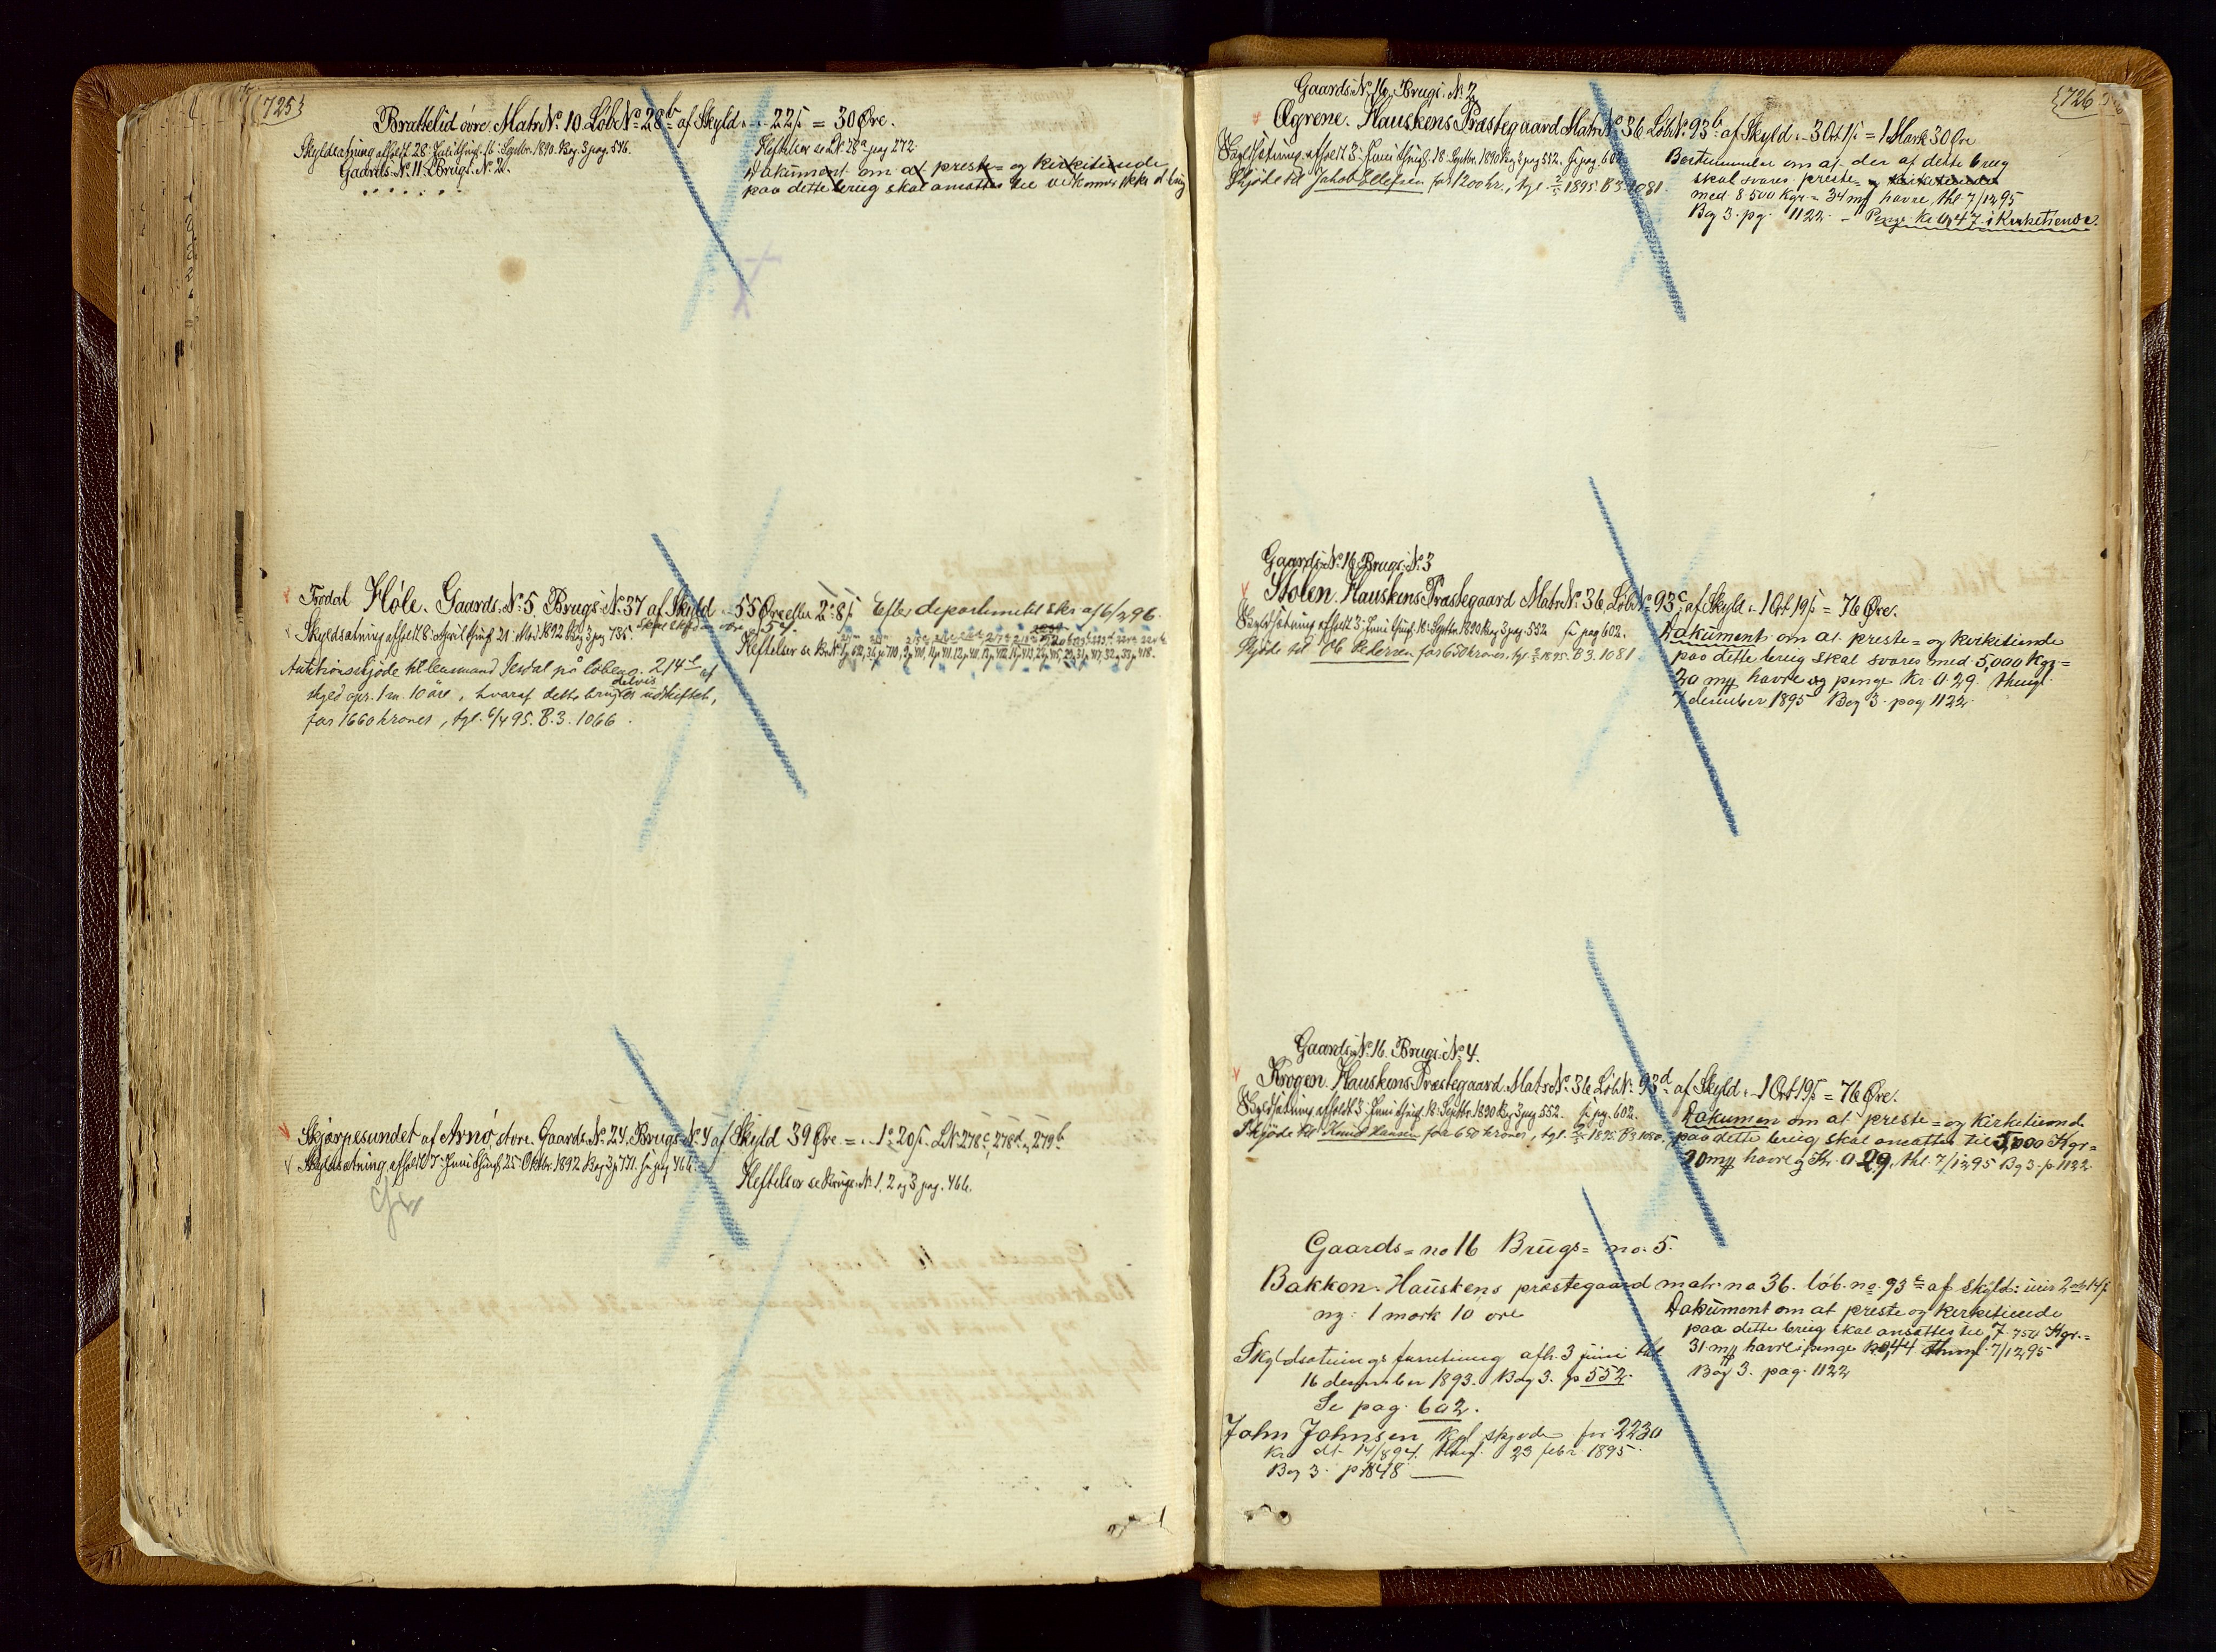 725
Brattelid øvre. Matr.No. 10. Løb.No. 28b af Skyld " " 22 ß = 30 Øre.
Skyldsætning afholdt 28. Juli thingl. 16. Septbr. 1890. Bog 3 pag. 546.
Gaards-No. 11. Brugs-No. 2.
Heftelser se L.No. 28a pag 272.
Dokument om at preste- og kirketiende
paa dette brug skal ansættes til
Frødal Høle. Gaards.No. 5. Brugs.No. 37 af Skyld " 55 Øre eller 2 " 8 ß Efter departementets skr af 6/2 96.
Skyldsætning afholdt 8. April thingl. 21. Mai 1892 Bog 3 pag 735.
Auktionsskjøde til lensmand Tesdal på løbeno. 214d af
skyld opr. 1 m. 10 øre, hvoraf dette brug delvis er udskiftet,
for 1660 kroner, tgl. 6/4 95. B.3. 1066.
Skjærpesundet af Arnø, store. Gaards.No. 24. Brugs.No. 4 af Skyld 39 Øre = " 1 " 20 ß. L.No. 278c, 278d, 279b
Skyldsætning afholdt 7. Juni thingl. 25. Oktbr. 1892 Bog 3 p 771. Se pag 466.
Heftelser se Brugs.No. 1, 2 og 3 pag. 466.
726
Gaards.No. 16. Brugs.No. 2
Øgrene. Hauskens Præstegaard Matr.No. 36 Løb.No. 93b af Skyld " 3 Ort 1 ß = 1 Mark 30 Øre
Skyldsætning afholdt 3. Juni thingl. 18. Septbr. 1890 Bog 3 pag 552. Se pag. 602.
Skjøde til Jakob Ellefsen for 1200 kr., tgl. 2/5 1895. B 3. 1081.
Bestemmelse om at der af dette brug
skal svares preste- og kirketiende
med 8.500 Kgr = 34 mg havre, thl. 7/12 95
Bog 3. pg. 1122 – Penge Kr 0,47 i Kirketiende.
Gaards.No. 16. Brugs.No. 3
Stølen. Hauskens Præstegaard Matr.No. 36. Løb.No. 93c af Skyld " 1 Ort 19 ß = 76 Øre.
Skyldsætning afholdt 3. Juni thingl. 18. Septbr. 1890 Bog 3 pag. 552. Se pag 602.
Skjøde til Ole Pedersen for 650 kroner, tgl. 2/5 1895. B 3. 1081
Dokument om at preste- og kirketiende
paa dette brug skal svares med 5,000 Kgr =
20 mg havre og penge Kr. 0.29. thingl.
7 december 1895 Bog 3. pag 1122
Gaards.No. 16. Brugs.No. 4.
Krogen. Hauskens Præstegaard. Matr.No. 36 Løb.No. 93d af Skyld " 1 Ort 19 ß = 76 Øre.
Skyldsætning afholdt 3. Juni thingl. 18. Septbr. 1890 Bog 3 pag 552. Se pag. 602.
Skjøde til Knud Hansen for 650 kroner, tgl. 2/5 1895. B 3. 1080.
Dokumen om at preste- og kirketiende
paa dette brug skal ansættes til 5,000 Kgr =
20 mg havre og Kr. 0.29, thl. 7/12 95 Bog 3. p 1122
Gaards- no 16 Brugs- no. 5.
Bakken. Hauskens præstegaard matr. no 36. løb. no 93e af skyld: 2 ort 14 ß
ny: 1 mark 10 øre
Dokument om at preste og kirketiende
paa dette brug skal ansættes til 7.750 Kgr. =
31 mg havre i penge kr 0,44 thingl. 7/12 95
Bog 3. pag. 1122
Skyldsætnings forretning afh. 3 juni thl
16 december 1893. Bog 3. p 552.
Se pag. 602.
John Johnsen kgl skjøde for 2230
Kr dt 14/8 94. thingl. 23 febr. 1895.
Bog 3. p 1048